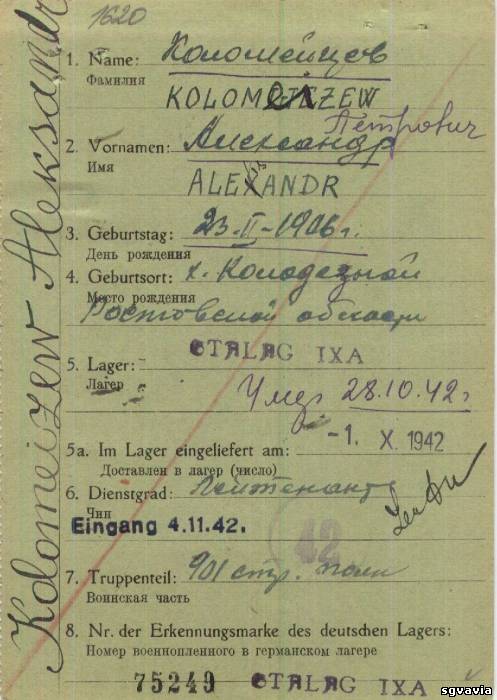 1620
Kolomeizew Aleksandr
1. Name: Коломейцов
Фамилия
KOLOMEIZEW
Петрович
2. Vornamen: Александр
Имя
ALEKSANDR
3. Geburtstag: 23-II-1906г.
День рождения
4. Geburtsort: х. Колодезной
Место рождения
Ростовской области
STALAG IXA
5. Lager:
Лагерь
Умер 28.10.42г
-1. X. 1942
5a. Im Lager eingeliefert am:
Доставлен в лагерь (число)
6. Dienstgrad: Лейтенант
Чин
Eingang 4.11.42.
42
7. Truppenteil: 901 стр. полк
Воинская часть
8. Nr. der Erkennungsmarke des deutschen Lagers:
Номер военнопленного в германском лагере
75249 STALAG IXA
sgvavia